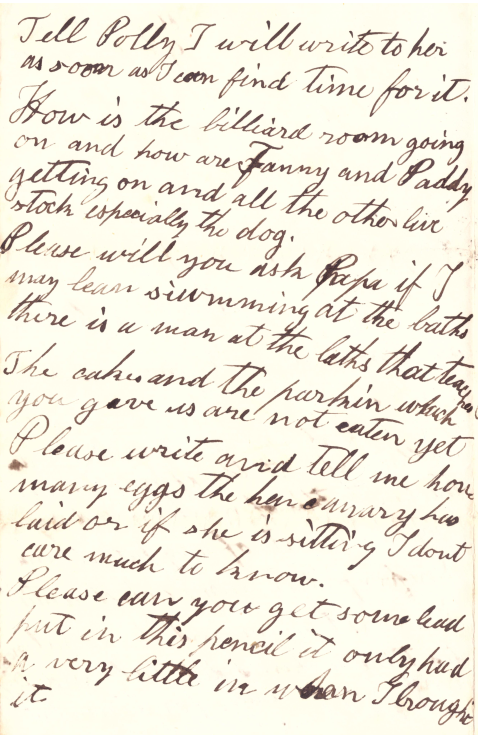 Tell Polly I will write to her
as soon as I can find time for it.
How is the billiard room going
on and how are Fanny and Paddy
getting on and all the other live
stock especially the dog.
Please will you ask Papa if I
may lean siwmming at the baths
there is a man at the baths that teaches
The cakes and the parkin which
you gave us are not eaten yet
Please write and tell me how
many eggs the hen canary has
laid or if she is sitting I dont
care much to know.
Please can you get some lead
put in this pencil it only had
a very little in when I brought
it